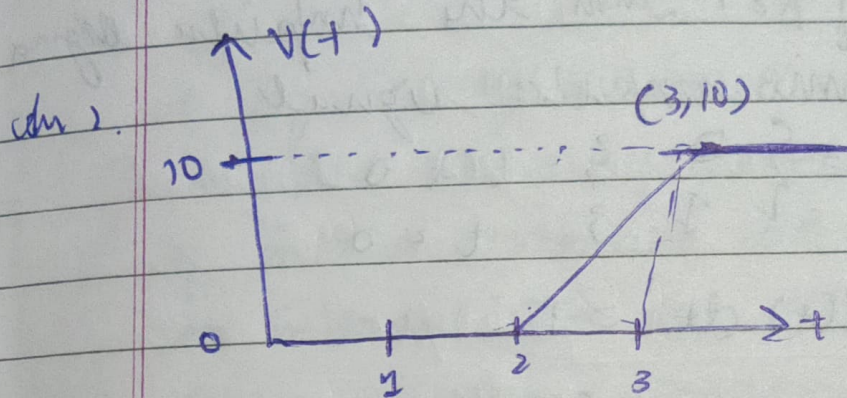 V(t)
(3,10)
10
0
1
2
3
t